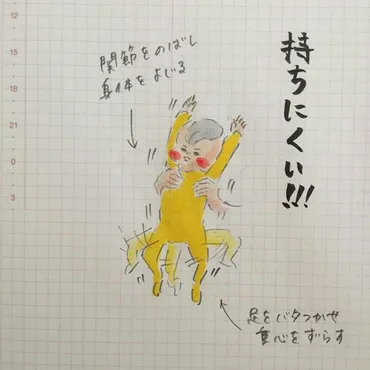 持ちにくい!!!
関節をのばし
身体をよじる
足をバタつかせ
重心をずらす
12
15
18
21
0
3